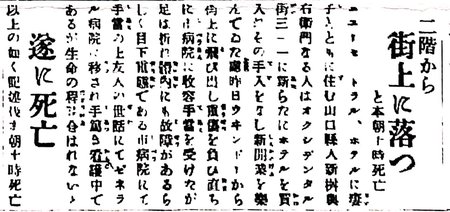 二階から
街上に落つ
と本朝十時死亡
ニユーセ トラル、ホテルに妻
子とともに住む山口縣人新 與
右衛門なる人はオクシデンタル
街三一一に新らたにホテルを買
入れその手入をなし新開業を樂
んでゐた處昨日ウキンドーから
街上に飛び出し重傷を負ひ直ち
に市病院に收容手當を受けたが
足は折れ 内にも故障があるら
しく目下重態である市病院にて
手當の上友人の世話にてゼネラ
ル病院に移され手篤き看護中で
あるが生命の程 はれないと
遂に死亡
以上の如く記述後 朝十時死亡